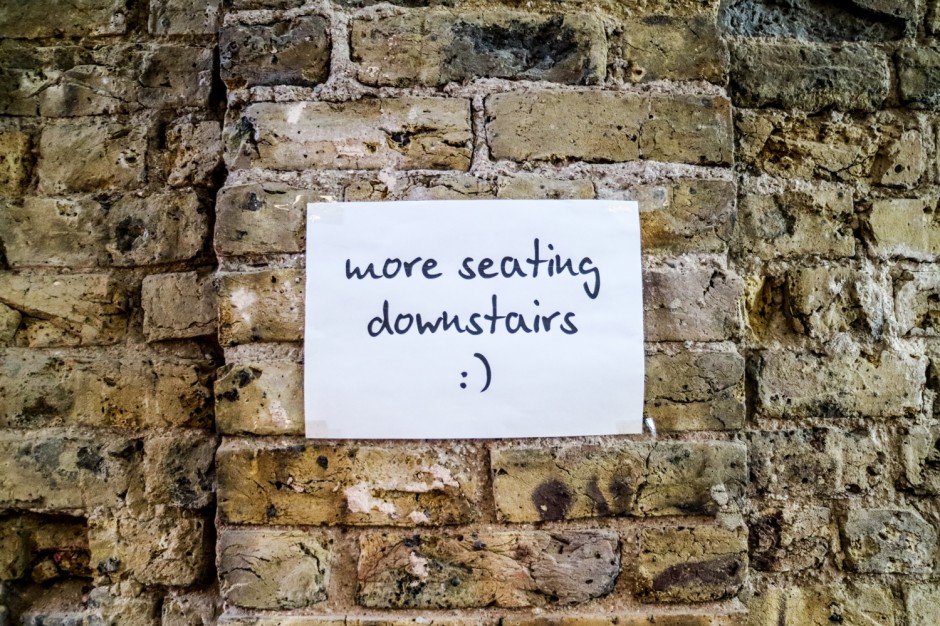 more seating
downstairs
:)